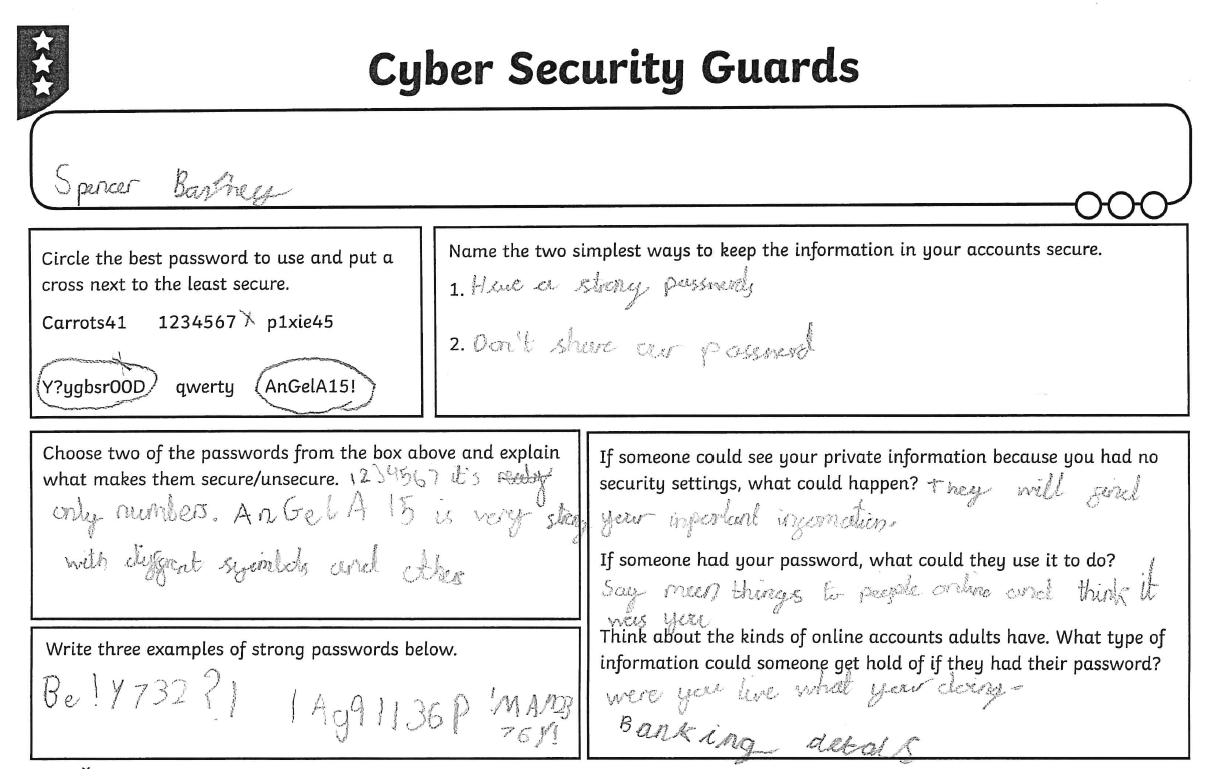 Cyber Security Guards
Spencer
Circle the best password to use and put a
cross next to the least secure.
Carrots41 1234567 X p1xie45
Y?ygbsr00D qwerty AnGelA15!
Name the two simplest ways to keep the information in your accounts secure.
1. Have a strong
2. Don't share our
Choose two of the passwords from the box above and explain
what makes them secure/unsecure. 1234567 it's
only numbers. AnGelA 15 is very strong
with and
Write three examples of strong passwords below.
Be!Y732?! 1Ag91136P
If someone could see your private information because you had no
security settings, what could happen? They will
your
If someone had your password, what could they use it to do?
Say mean things to people online and think it
was you
Think about the kinds of online accounts adults have. What type of
information could someone get hold of if they had their password?
were you live what your doing-
Banking